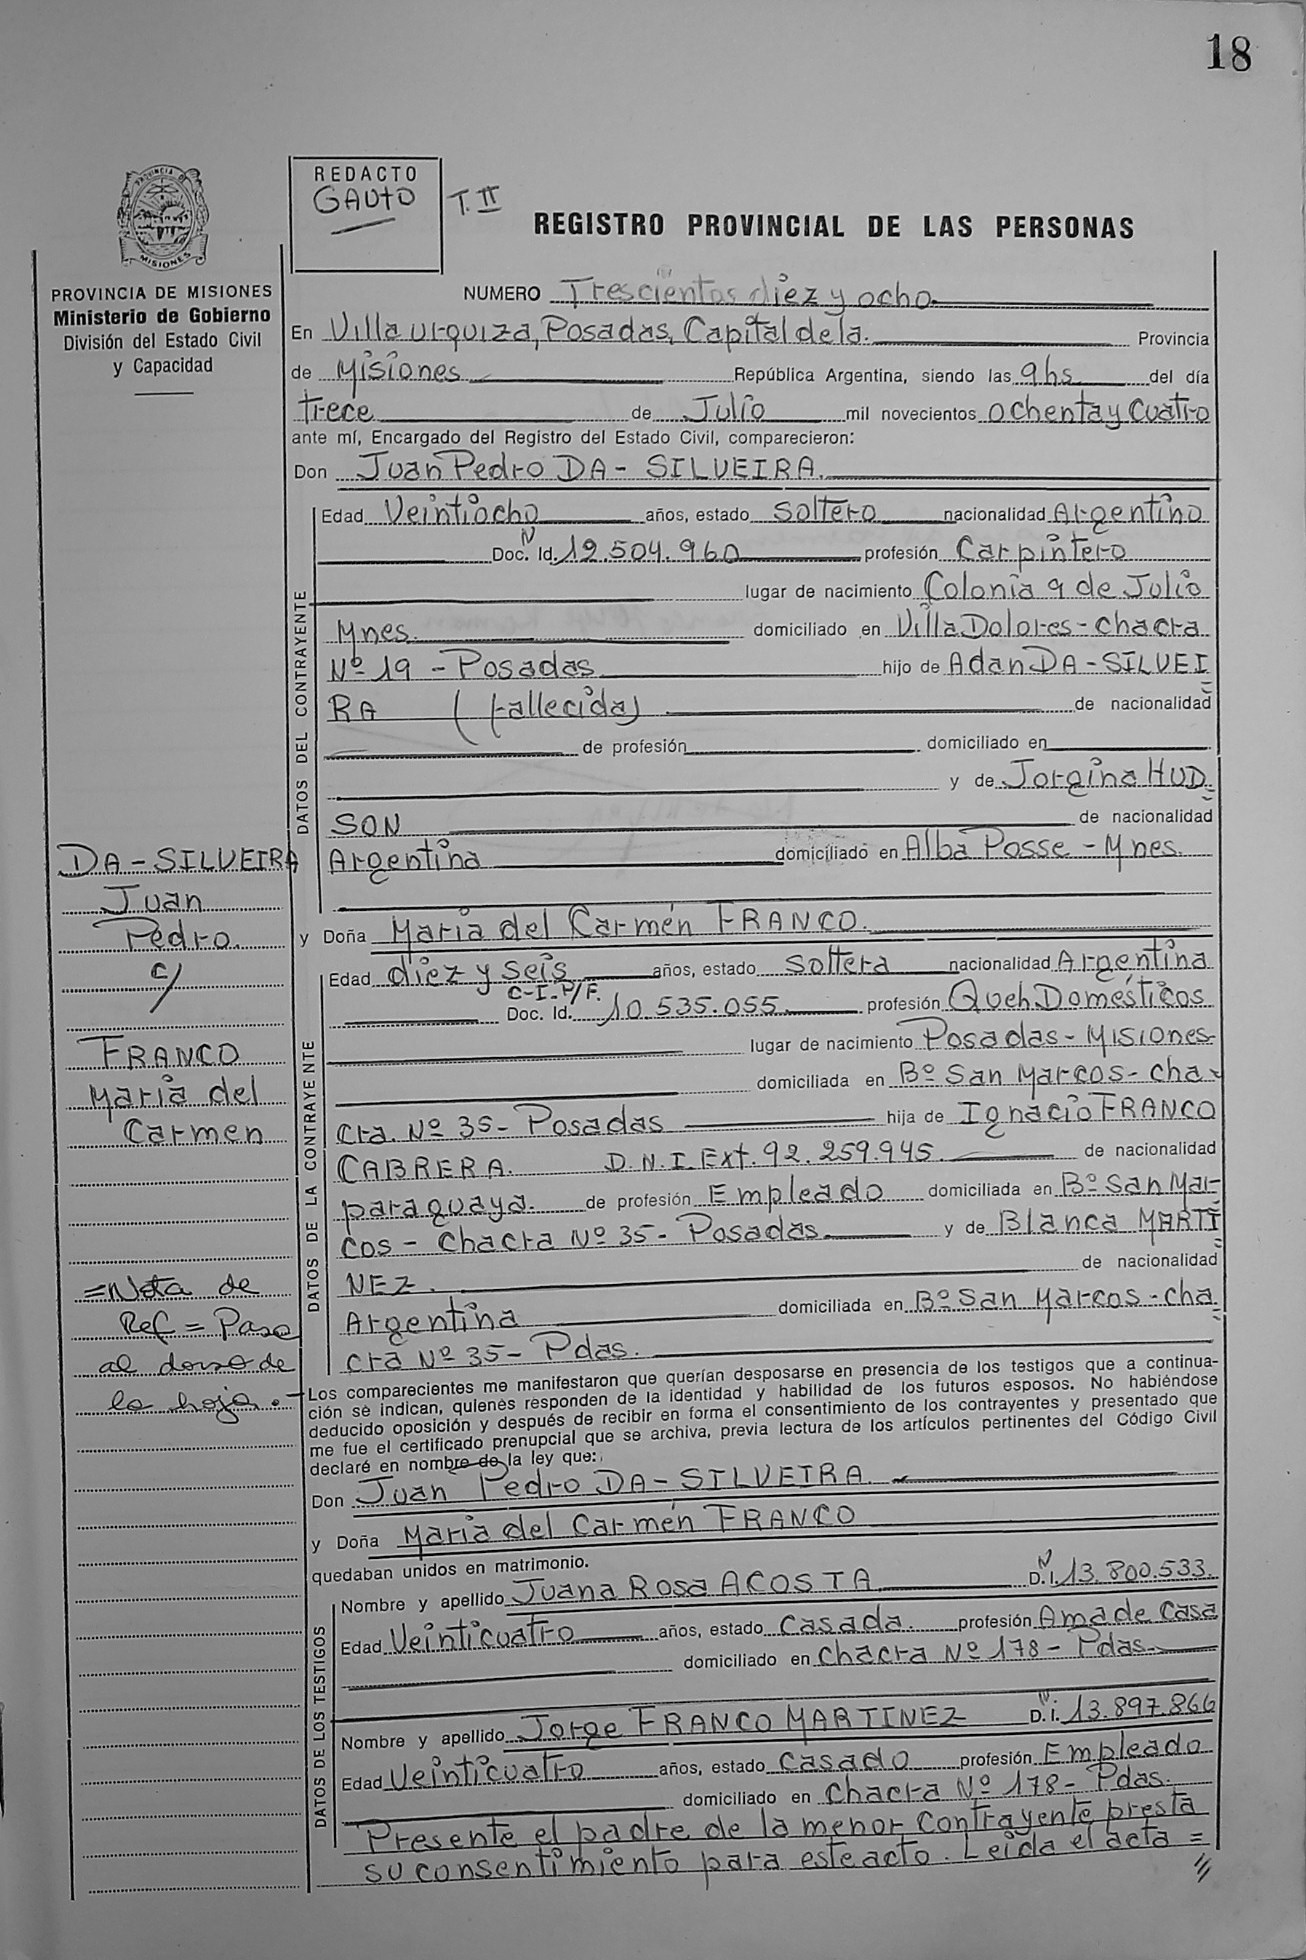 18
PROVINCIA DE
MISIONES
REDACTO
GAUTO
T. II
REGISTRO PROVINCIAL DE LAS PERSONAS
PROVINCIA DE MISIONES
Ministerio de Gobierno
División del Estado Civil
y Capacidad
NUMERO Trescientos diez y ocho
En Villa urquiza, Posadas, Capital de la. Provincia
de Misiones República Argentina, siendo las 9 hs del día
trece de Julio mil novecientos ochenta y cuatro
ante mí, Encargado del Registro del Estado Civil, comparecieron:
Don Juan Pedro DA - SILVEIRA.
DATOS DEL CONTRAYENTE
Edad Veintiocho años, estado soltero nacionalidad Argentino
Doc. N Id. 12.504.960 profesión Carpintero
lugar de nacimiento Colonia 9 de Julio
Mnes. domiciliado en Villa Dolores - chacra
Nº 19 - Posadas hijo de Adan DA - SILVEI
RA (fallecido) de nacionalidad
de profesión domiciliado en
y de Jorgina HUD
SON de nacionalidad
Argentina domiciliado en Alba Posse - Mnes.
y Doña Maria del Carmen FRANCO.
DA - SILVEIRA
Juan
Pedro
c/
FRANCO
Maria del
Carmen
=Nota de
Ref = Pase
al dorso de
la hoja. -
DATOS DE LA CONTRAYENTE
Edad diez y seis años, estado soltera nacionalidad Argentina
C-I-P/F.
Doc. Id. 10.535.055 profesión Queh. Domésticos
lugar de nacimiento Posadas - Misiones
domiciliada en Bº San Marcos - cha-
cra. Nº 35 - Posadas hija de Ignacio FRANCO
CABRERA. D.N.I. Ext. 92.259.945. de nacionalidad
paraguaya. de profesión Empleado domiciliada en Bº San Mar-
cos - chacra Nº 35 - Posadas y de Blanca MARTI
NEZ. de nacionalidad
Argentina domiciliada en Bº San Marcos - cha
cra Nº 35 - Pdas.
Los comparecientes me manifestaron que querían desposarse en presencia de los testigos que a continua-
ción se indican, quienes responden de la identidad y habilidad de los futuros esposos. No habiéndose
deducido oposición y después de recibir en forma el consentimiento de los contrayentes y presentado que
me fue el certificado prenupcial que se archiva, previa lectura de los artículos pertinentes del Código Civil
declaré en nombre de la ley que:
Don Juan Pedro DA - SILVEIRA
y Doña Maria del Carmen FRANCO
quedaban unidos en matrimonio.
DATOS DE LOS TESTIGOS
Nombre y apellido Juana Rosa ACOSTA D. N I. 13.800.533.
Edad Veinticuatro años, estado Casada. profesión Ama de Casa
domiciliado en chacra Nº 178 - Pdas.
Nombre y apellido Jorge FRANCO MARTINEZ D. N i. 13.897.866
Edad Veinticuatro años, estado Casado profesión Empleado
domiciliado en chacra Nº 178 - Pdas.
Presente el padre de la menor contrayente presta
su consentimiento para este acto. Leida el acta =